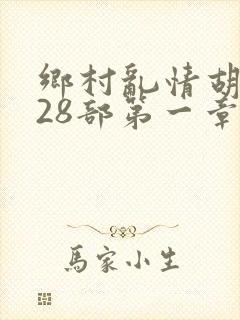 鄉村亂情胡
28部第一章
馬家小生